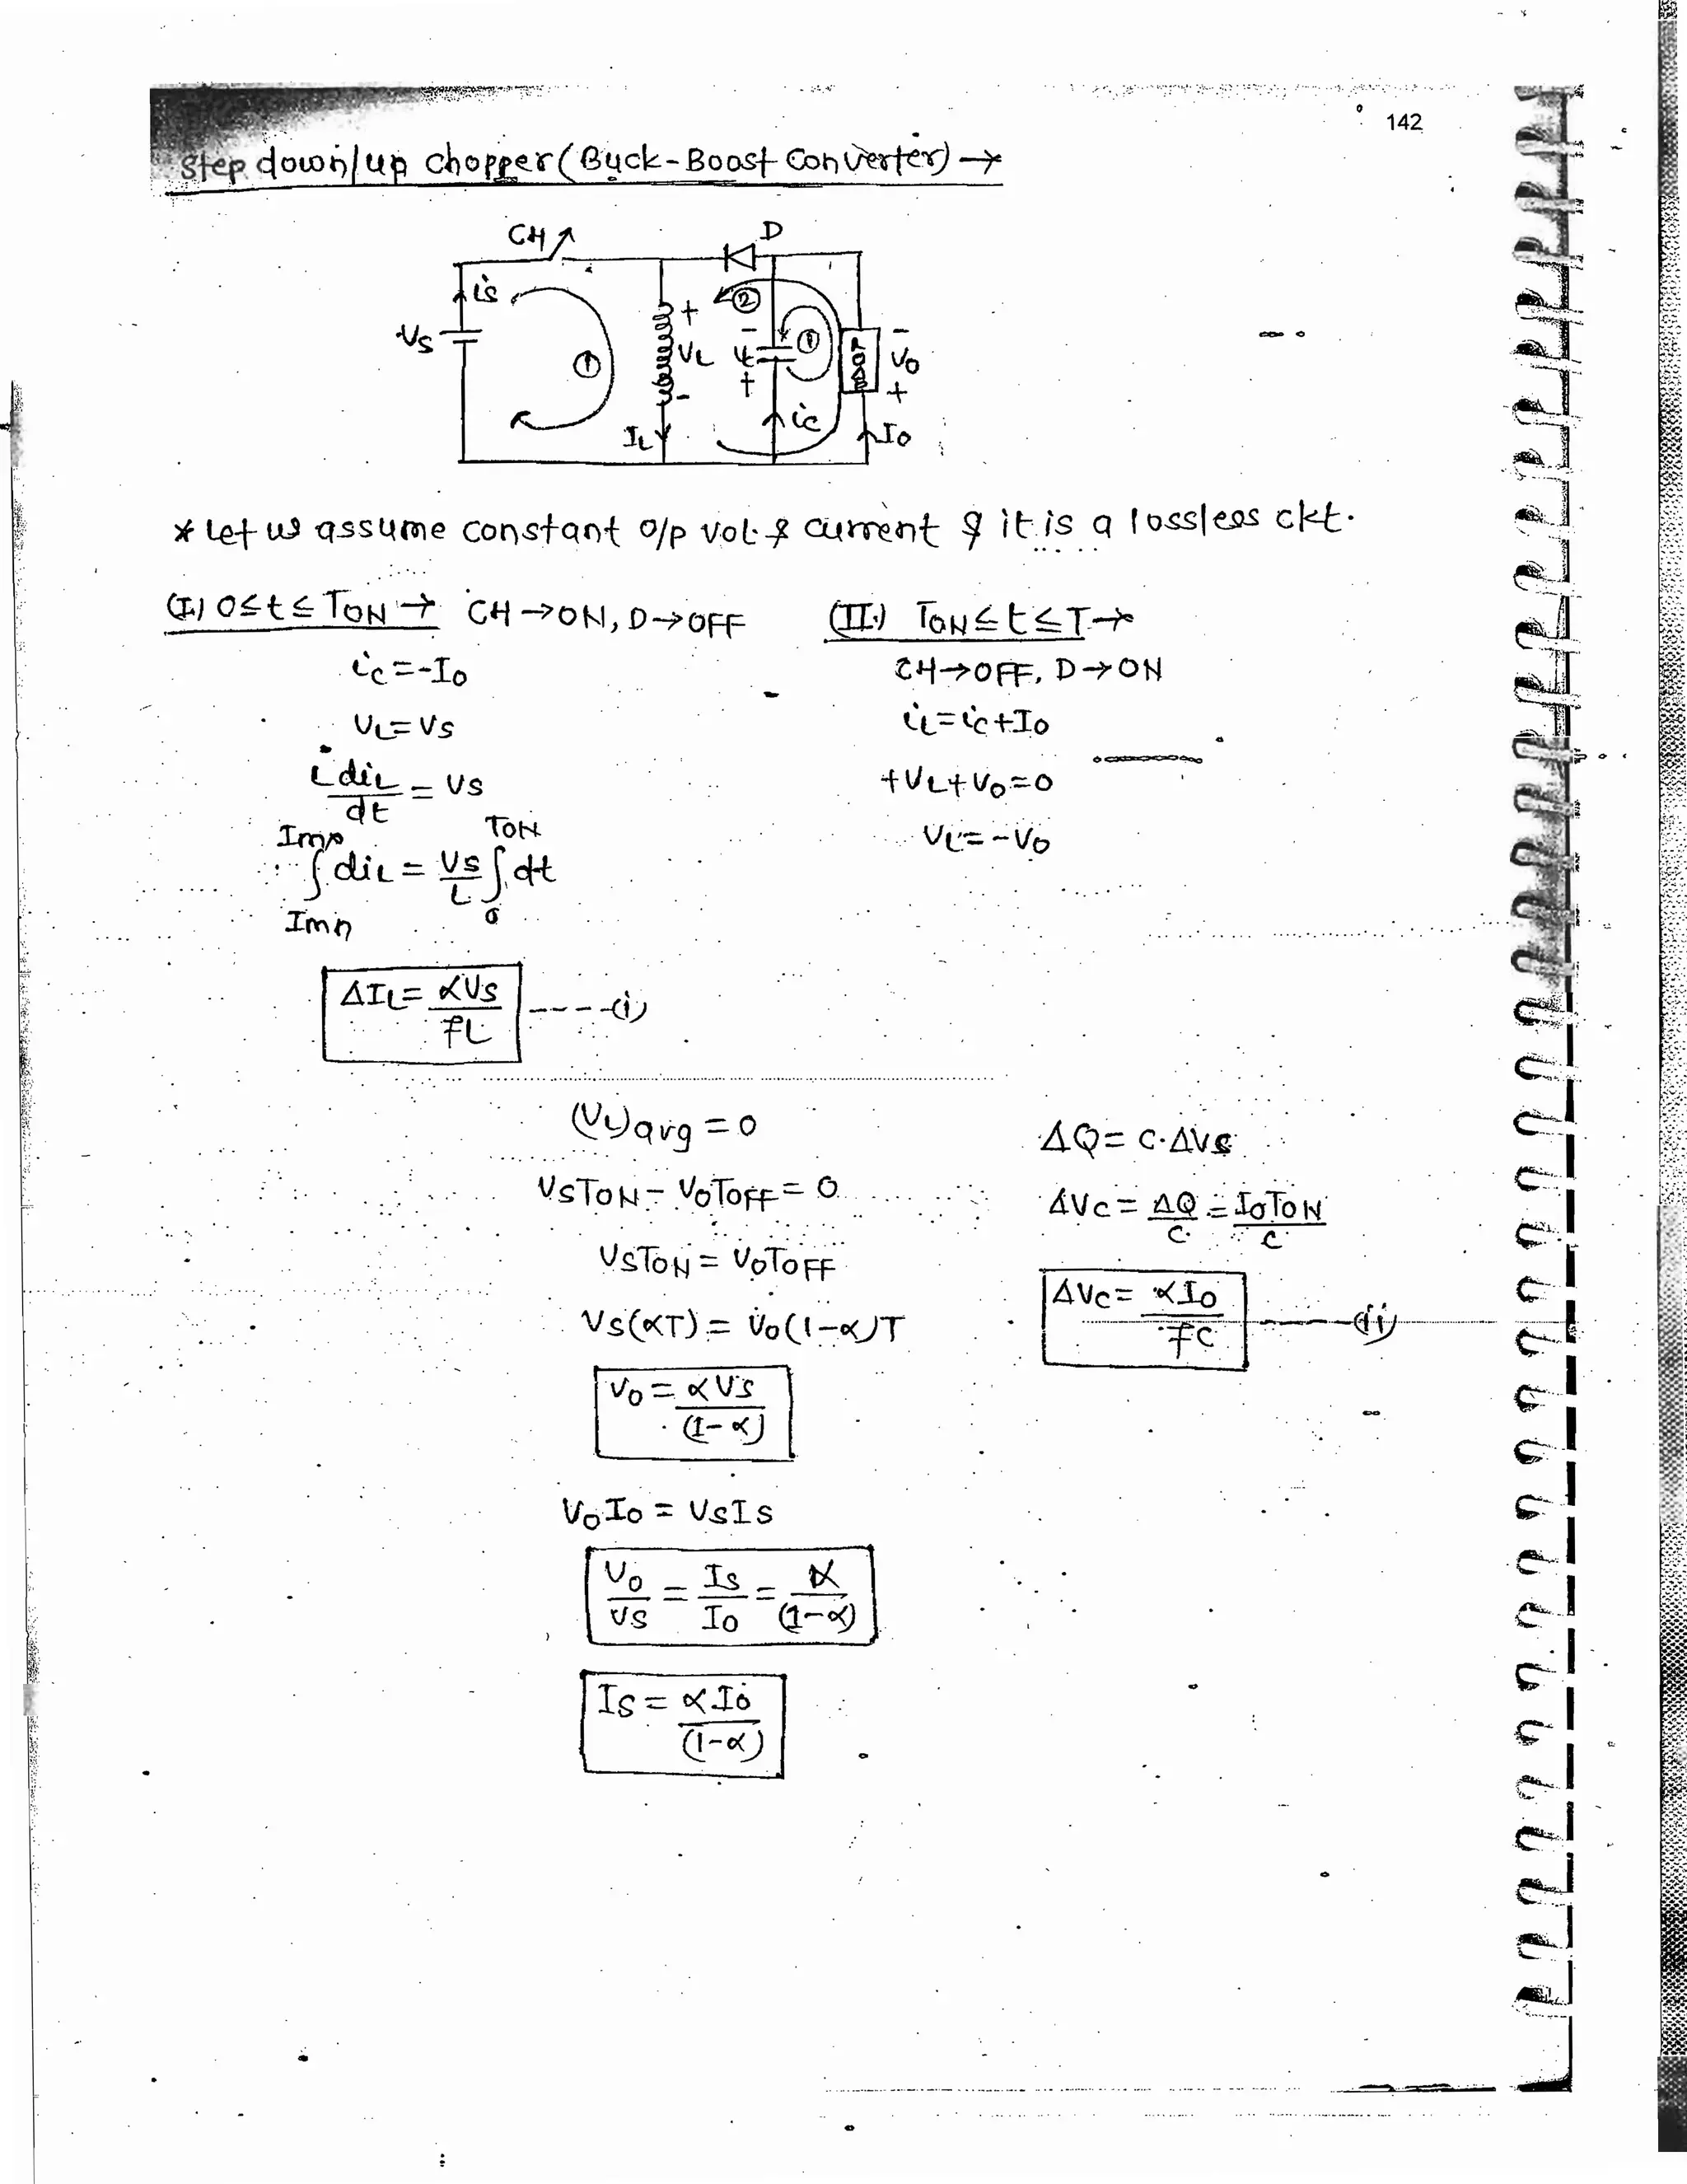 142
Step down/up chopper (Buck-Boost Converter) →
CH
D
is
+
②
-
-
Vs
①
VL
Vc
①
LOAD
Vo
-
+
+
IL
ic
Io
* Let us assume constant o/p vol. & current & it is a lossless ckt.
(I.) 0≤t≤TON → CH→ON, D→OFF
ic = -Io
VL = Vs
L diL/dt = Vs
∫ diL = Vs/L ∫ dt
Imp TON
Imn 0
ΔIL = αVs/fL ----(i)
(II.) TON≤t≤T→
CH→OFF, D→ON
iL = ic + Io
+VL + Vo = 0
VL = -Vo
(VL)avg = 0
VsTON - VoTOFF = 0
VsTON = VoTOFF
Vs(αT) = Vo(1-α)T
Vo = αVs/(1-α)
VoIo = VsIs
Vo/Vs = Is/Io = α/(1-α)
Is = αIo/(1-α)
ΔQ = C·ΔVc
ΔVc = ΔQ/C = IoTON/C
ΔVc = αIo/fC ----(ii)